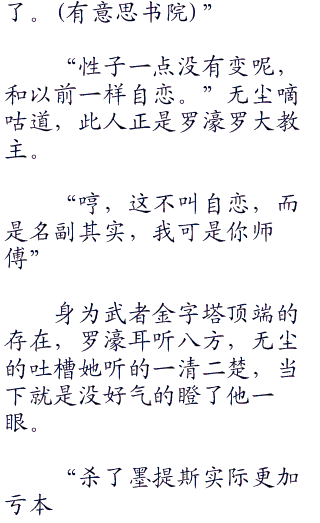 了。(有意思书院)”
“性子一点没有变呢，
和以前一样自恋。”无尘嘀
咕道，此人正是罗濠罗大教
主。
“哼，这不叫自恋，而
是名副其实，我可是你师
傅”
身为武者金字塔顶端的
存在，罗濠耳听八方，无尘
的吐槽她听的一清二楚，当
下就是没好气的瞪了他一
眼。
“杀了墨提斯实际更加
亏本